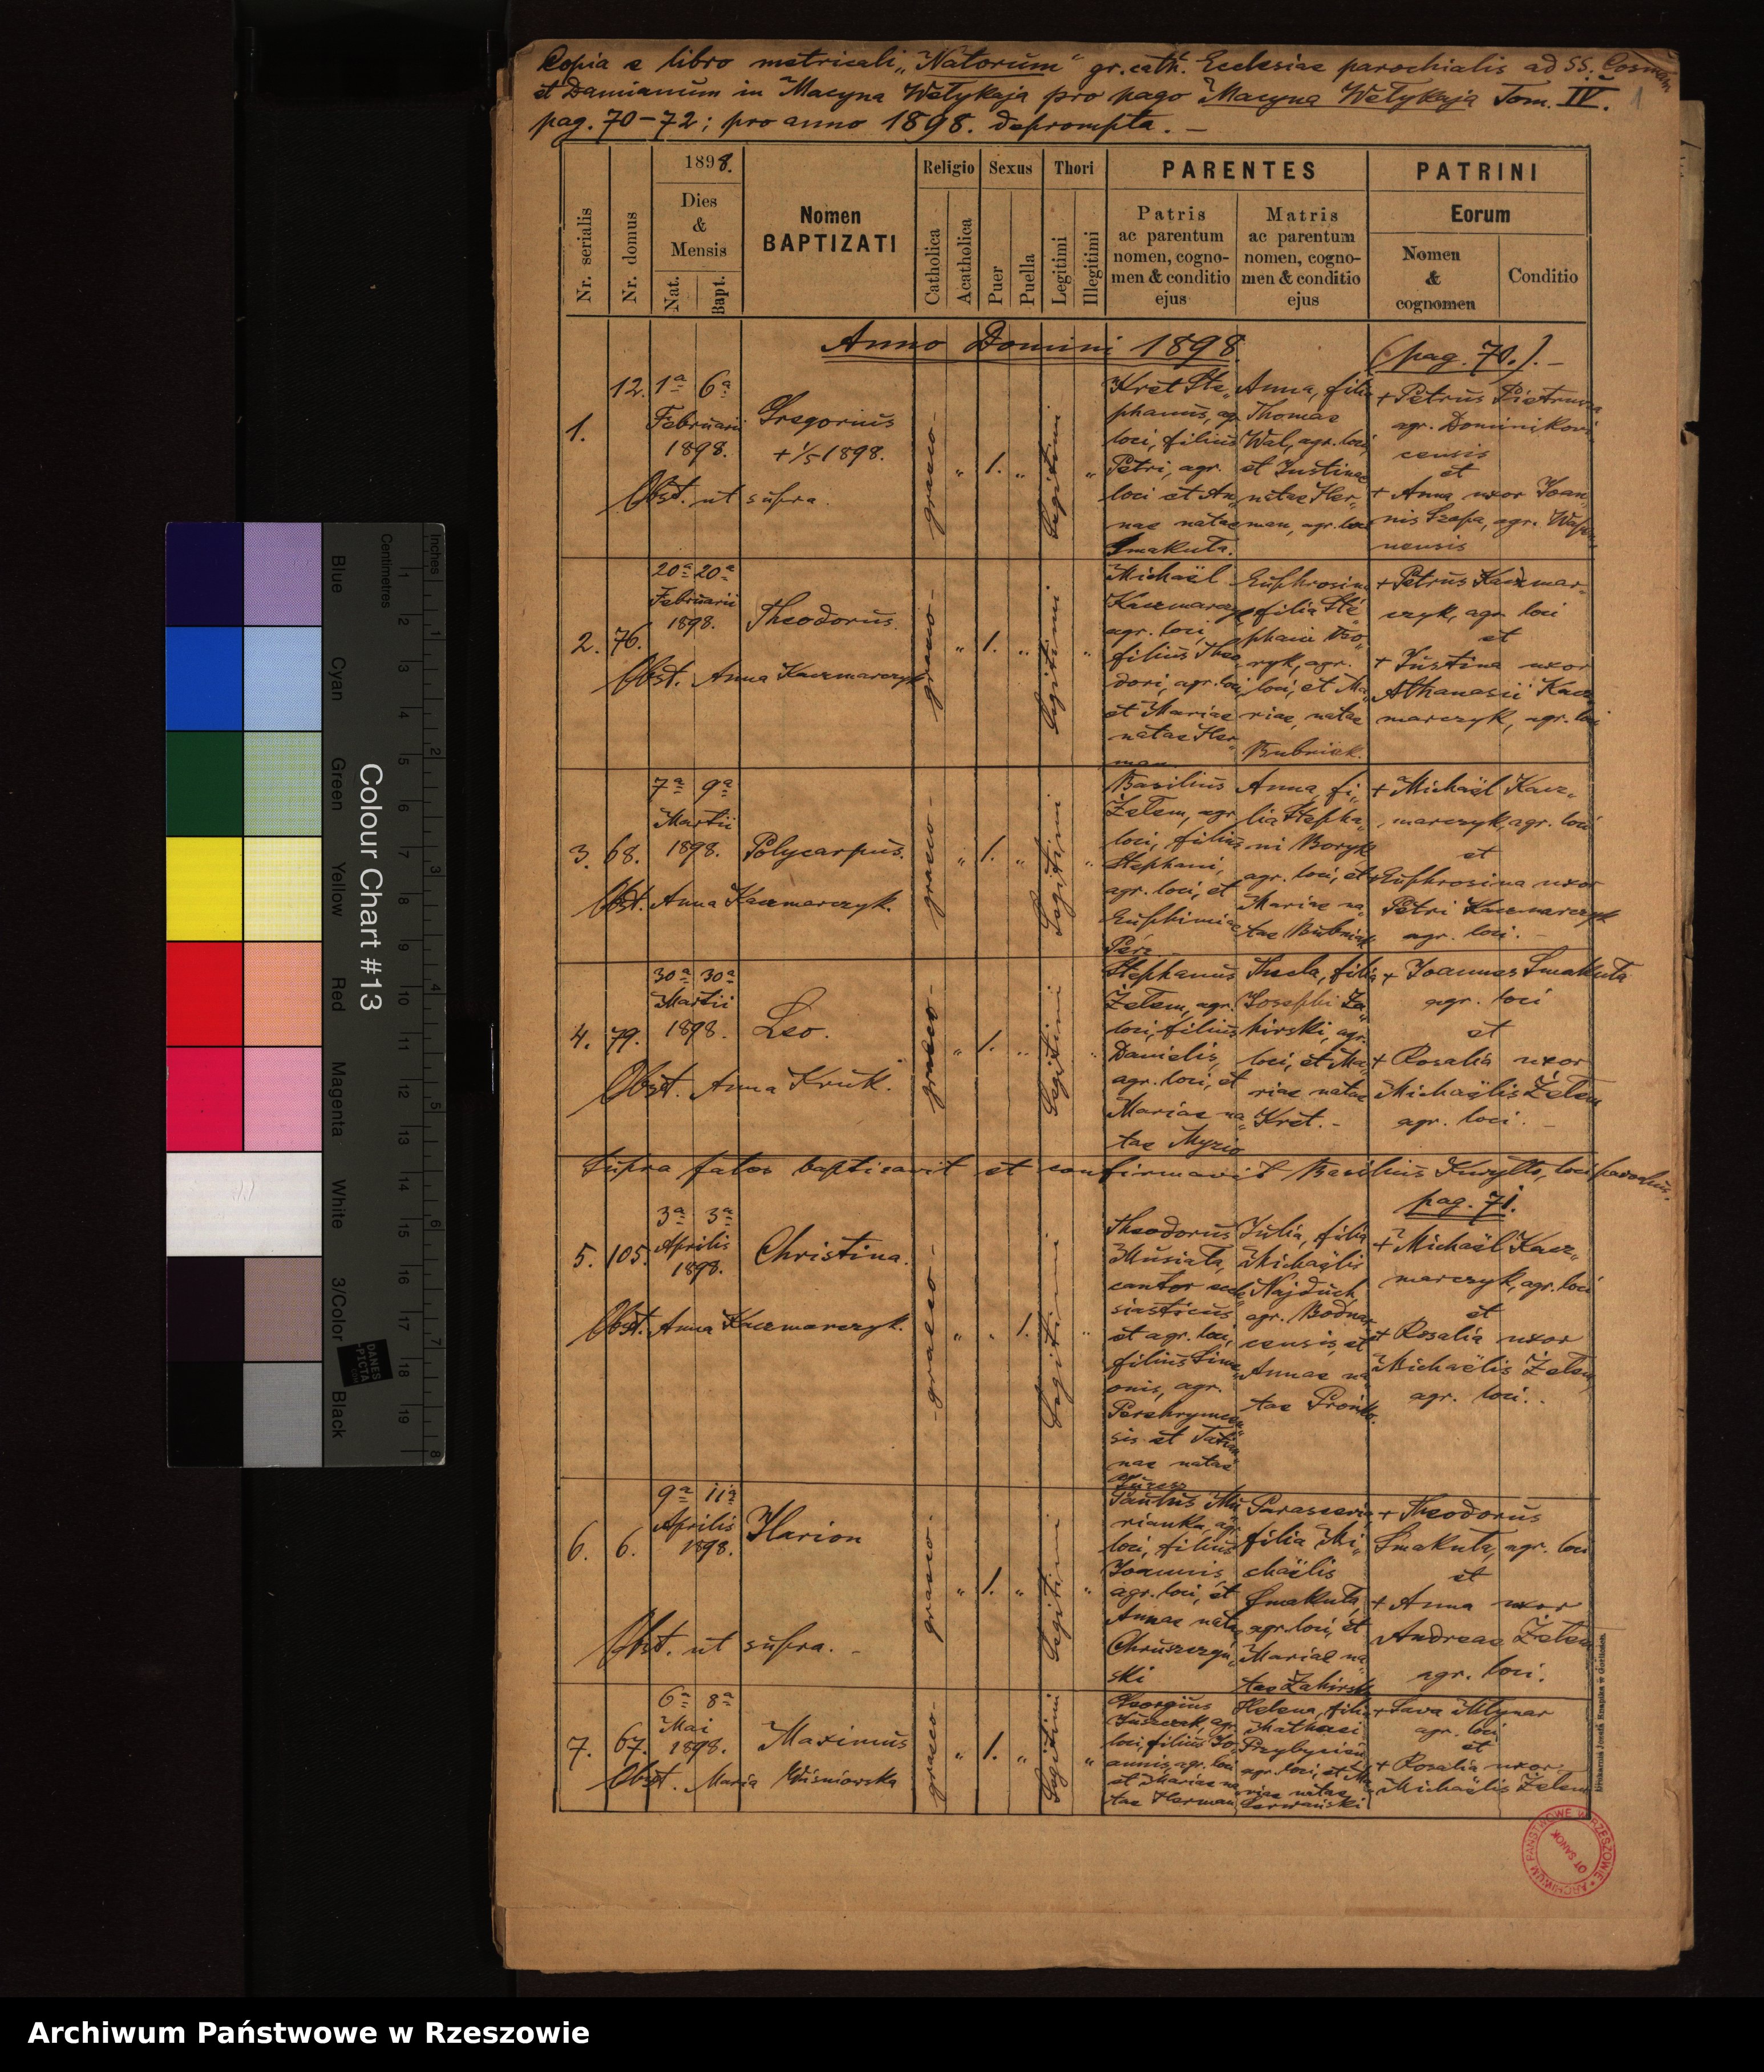 Copia e libro metricali „Natorum“ gr. cath. Ecclesiae parochialis ad SS. Cosmam
et Damianum in Macyna Wełykaja pro pago Macyna Wełykaja Tom. IV. 1
pag. 70-72; pro anno 1898. deprompta. –
Nr. serialis
Nr. domus
1898.
Dies
&
Mensis
Nat.
Bapt.
Nomen
BAPTIZATI
Religio
Catholica
Acatholica
Sexus
Puer
Puella
Thori
Legitimi
Illegitimi
PARENTES
Patris
ac parentum
nomen, cogno-
men & conditio
ejus
Matris
ac parentum
nomen, cogno-
men & conditio
ejus
PATRINI
Eorum
Nomen
&
cognomen
Conditio
Anno Domini 1898. (pag. 70.). –
1.
12.
1ª 6ª
Februarii
1898.
Gregorius
+ 1/5 1898.
Obst. ut supra.
graeco-
„ 1. „
Legitimi
„
Kret Ste„
phanus, agr.
loci, filius
Petri, agr.
loci et An„
nae natae
Smakuta.
Anna, filia
Thomae
Wal, agr. loci,
et Justinae
natae Her„
man, agr. loci
+ Petrus Pietrusza
agr. Dominikovi
censis
et
+ Anna uxor Joan„
nis Szafa, agr. Wap
nensis
2.
76.
20ª 20ª
Februarii
1898.
Theodorus.
Obst. Anna Kaczmarczyk
graeco-
„ 1. „
Legitimi
„
Michaël
Kaczmarczyk
agr. loci,
filius Theo
dori, agr. loci,
et Mariae
natae Her„
man.
Euphrosina
filia Ste
phani Bo„
ryk, agr.
loci, et Ma„
riae, natae
Bubniak.
+ Petrus Kaczmar„
czyk, agr. loci
et
+ Justina uxor
Athanasii Kacz
marczyk, agr. loci
3.
68.
7ª 9ª
Martii
1898.
Polycarpus.
Obst. Anna Kaczmarczyk.
graeco-
„ 1. „
Legitimi
„
Basilius
Żełem, agr.
loci, filius
Stephani,
agr. loci, et
Euphimiae
Anna, fi„
lia Stepha„
ni Boryk
agr. loci, et
Mariae na„
tae Bubniak
+ Michaël Kacz„
marczyk, agr. loci
et
+ Euphrosina uxor
Petri Kaczmarczyk
agr. loci. –
4.
79.
30ª 30ª
Martii
1898.
Leo.
Obst. Anna Kruk.
graeco-
„ 1. „
Legitimi
„
Stephanus
Żełem, agr.
loci, filius
Danielis,
agr. loci, et
Mariae na„
tae Myzio
Thecla, filia
Josephi Za„
hirski, agr.
loci, et Ma„
riae natae
Kret. –
+ Joannes Smakuta
agr. loci
et
+ Rosalia uxor
Michaëlis Żełem
agr. loci. –
Supra fatos baptisavit et confirmavit Basilius Kuryłło, loci parochus.
pag. 71.
5.
105.
3ª 3ª
Aprilis
1898.
Christina.
Obst. Anna Kaczmarczyk.
- graeco -
„ . 1.
Legitimi
„
Theodorus
Musiata,
cantor eccle
siasticus
et agr. loci,
filius Sime„
onis, agr.
Perehrymcen„
sis et Tatian„
nae natae
Julia, filia
Michaëlis
Najduch
agr. Bodnar
censis, et
Annae na
tae Pronko.
+ Michaël Kacz„
marczyk, agr. loci
et
+ Rosalia uxor
Michaëlis Żełem
agr. loci..
6.
6.
9ª 11ª
Aprilis
1898.
Ilarion
Obst. ut supra. –
graeco.
„ 1. „
Legitimi
„
Paulus Mu
rianka, agr.
loci, filius
Joannis,
agr. loci, et
Annae natae
Chruszczyń„
ski
Parascevia
filia Mi„
chaëlis
Smakuta,
agr. loci, et
Mariae na„
tae Zahirski
+ Theodorus
Smakuta, agr. loci
et
+ Anna uxor
Andreae Żełem
agr. loci.
7.
67.
6ª 8ª
Mai
1898.
Maximus
Obst. Maria Wisniowska
graeco-
„ 1. „
Legitimi
„
Georgius
Juszczak, agr.
loci, filius Jo„
annis, agr. loci
et Mariae na„
tae Herman
Helena, filia
Mathaei
Przybycień
agr. loci, et Ma„
riae natae
+ Sava Młynar
agr. loci
et
+ Rosalia uxor
Michaëlis Żełem
Drukarnia Josefa Knapika w Gorlicach.
ARCHIWUM PAŃSTWOWE W RZESZOWIE
OT SANOK
Colour Chart #13
Blue
Cyan
Green
Yellow
Red
Magenta
White
3/Color
Black
Centimetres
Inches
1 2 3 4 5 6 7 8 9 10 11 12 13 14 15 16 17 18 19
1 2 3 4 5 6 7 8
DANES
-PICTA
.COM
Archiwum Państwowe w Rzeszowie